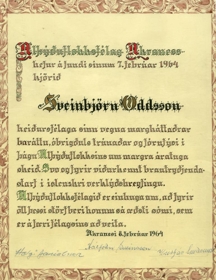 Alþýðuflokksfélag Akraness
hefur á fundi sínum 7. febrúar 1964
kjörið
Sveinbjörn Oddsson
heiðursfélaga sinn vegna margháttaðrar
baráttu, óbrigðuls trúnaðar og fórnfýsi í
þágu Alþýðuflokksins um margra áratuga
skeið. Svo og fyrir viðurkennt brautryðjenda-
starf í íslenskri verkalýðshreyfingu.
Alþýðuflokksfélagið er einhuga um, að fyrir
öll þessi störf beri honum sá
sem
er á færi félagsins að veita.
Akranesi 8. febrúar 1964